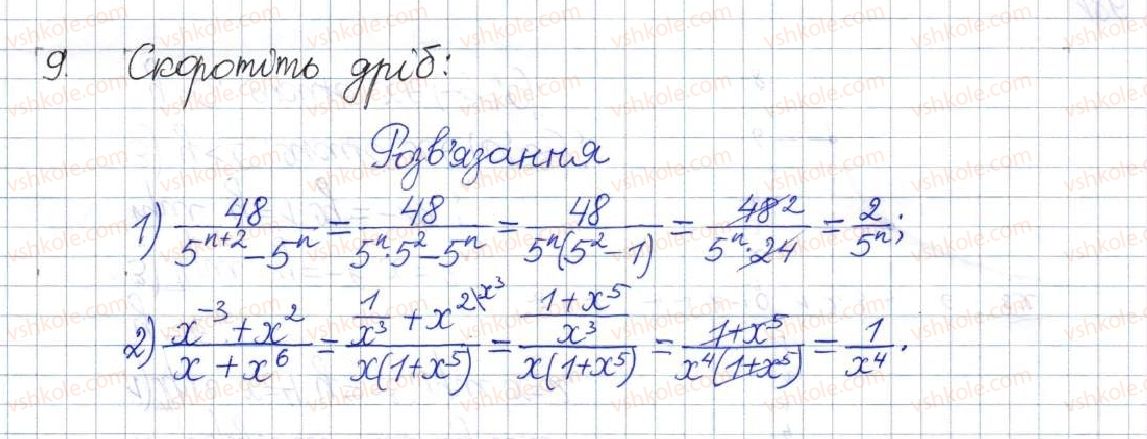 9. Скоротіть дріб:
Розв'язання
1) 48/(5^(n+2) - 5^n) = 48/(5^n · 5^2 - 5^n) = 48/(5^n(5^2 - 1)) = 48 2/(5^n · 24) = 2/5^n;
2) (x^(-3) + x^2)/(x + x^6) = (1/x^3 + x^2\x^3)/(x(1 + x^5)) = ((1 + x^5)/x^3)/(x(1 + x^5)) = (1 + x^5)/(x^4(1 + x^5)) = 1/x^4.
vshkole.com